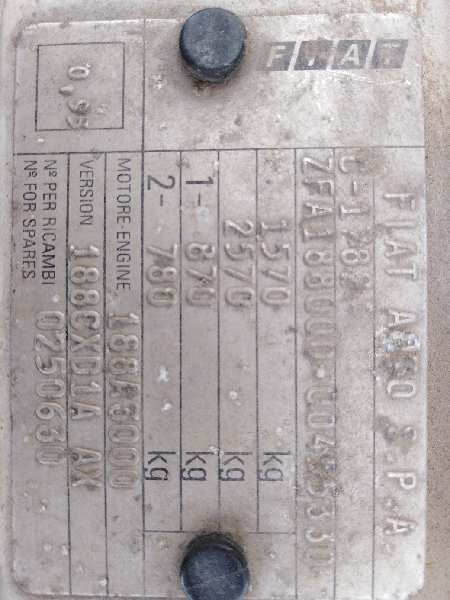 FIAT
FIAT AUTO S.P.A
1570 kg
2570 kg
1- 870 kg
2- 780 kg
MOTORE-ENGINE 188A3000
VERSION 188CXD1A AX
Nº PER RICAMBI 0250630
Nº FOR SPARES
0,95